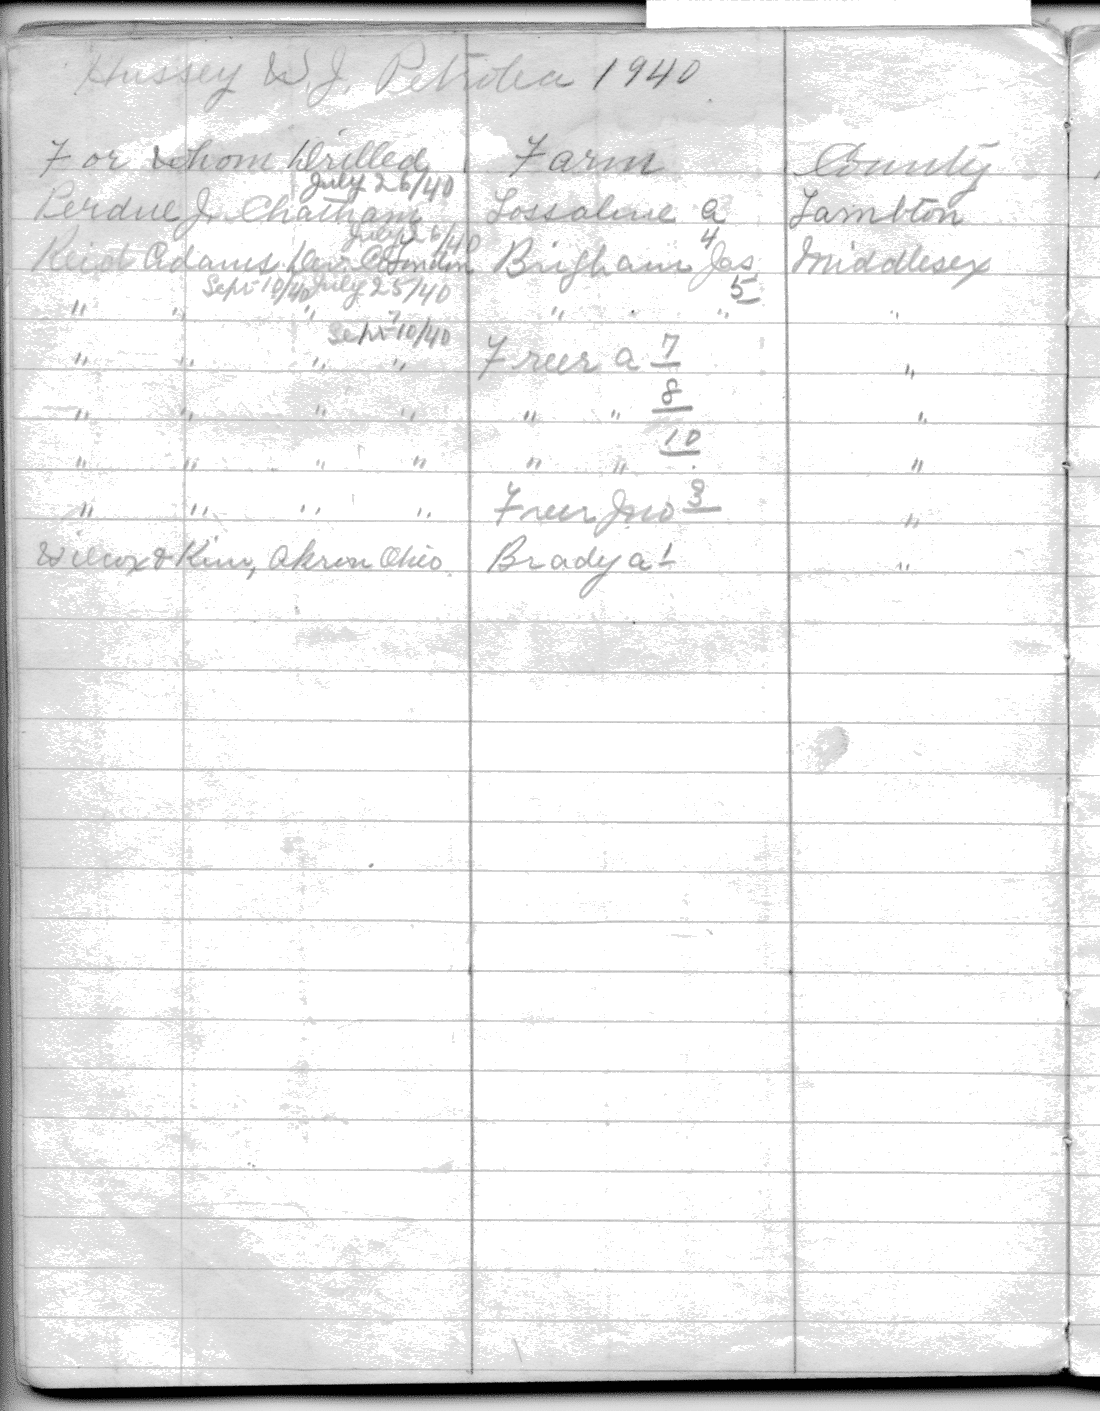 Hussey W. J. Petrolea 1940
For whom Drilled Farm County
July 26/40
Perdue J. Chatham Lossaline a Lambton
July 26/40 4
Reid Adams Dev. Co London Brigham Jas. Middlesex
Sept 10/40 July 25/40 5
" " " " " " "
Sept 10/40
" " " " Freer a 7 "
8
" " " " " " "
10
" " " " " " "
" " " " Freer Jno 3 "
Wilcox & Kim, Akron Ohio. Brady a 1 "